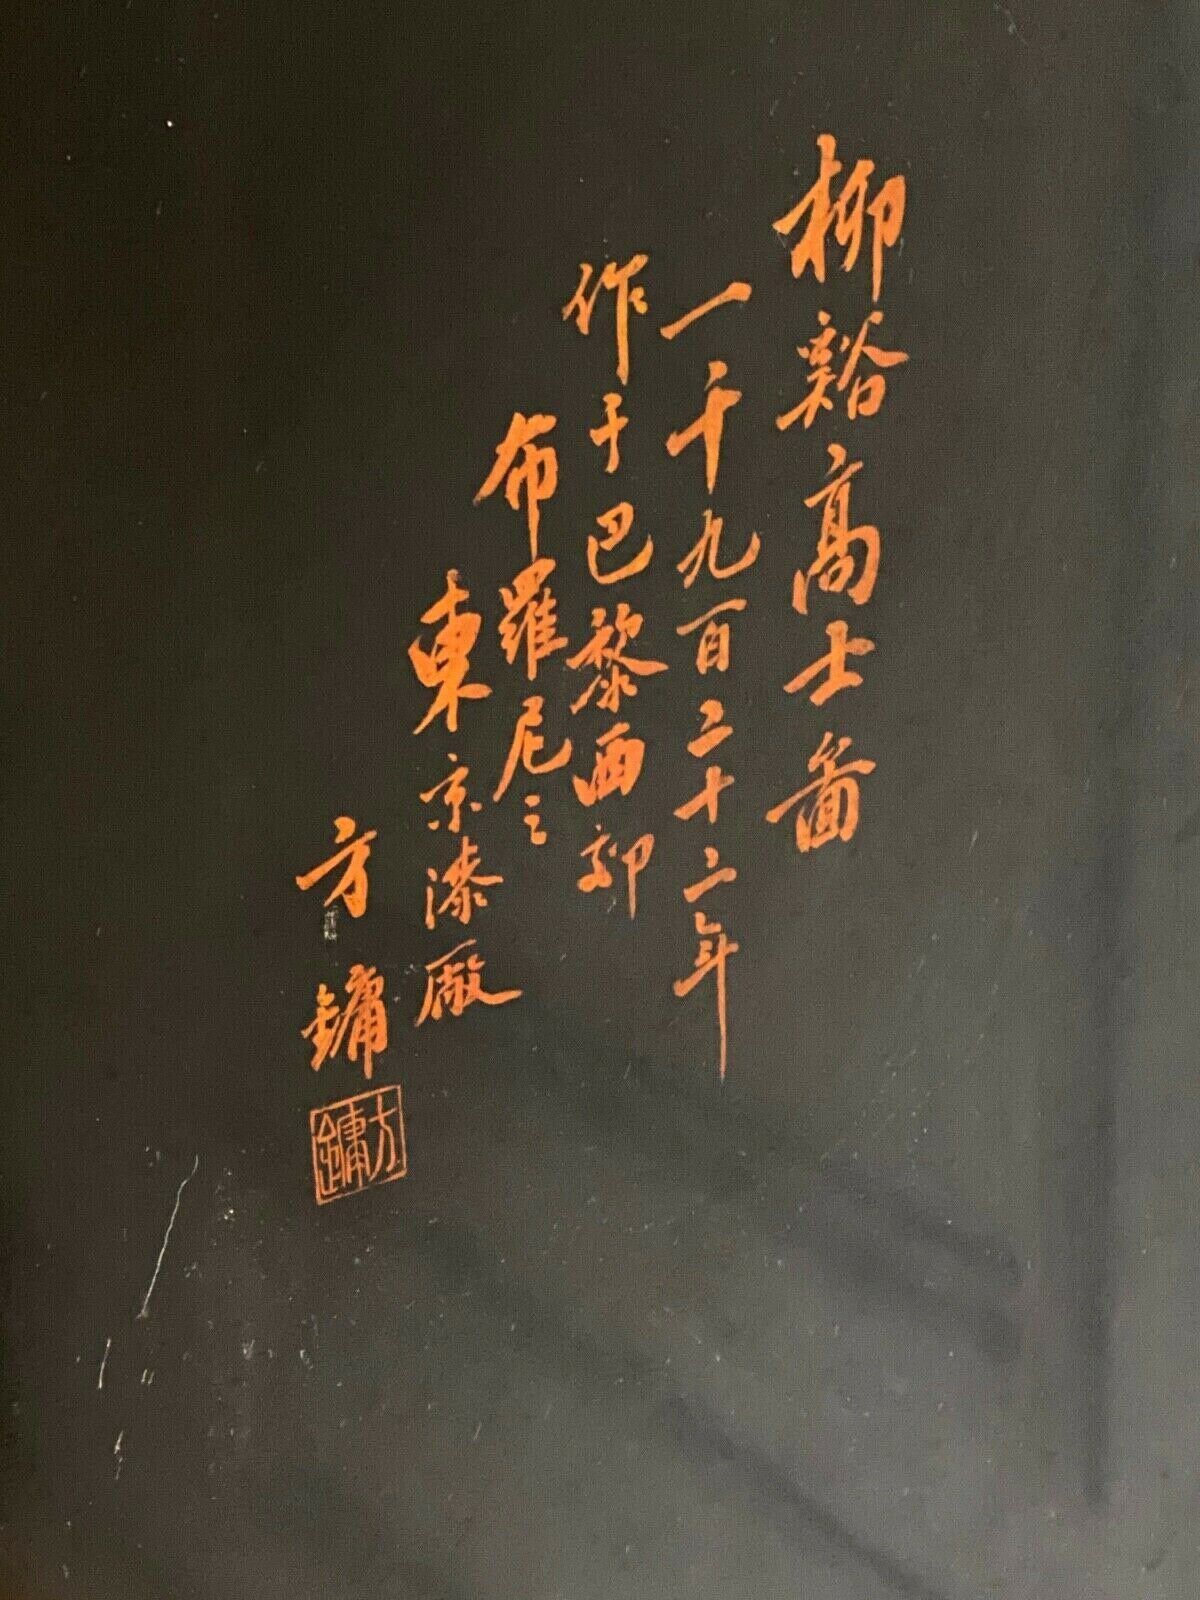 柳谿高士啚
一千九百二十二年
作于巴黎西郊
布羅尼之
東京漆廠
方鏞
方鏞